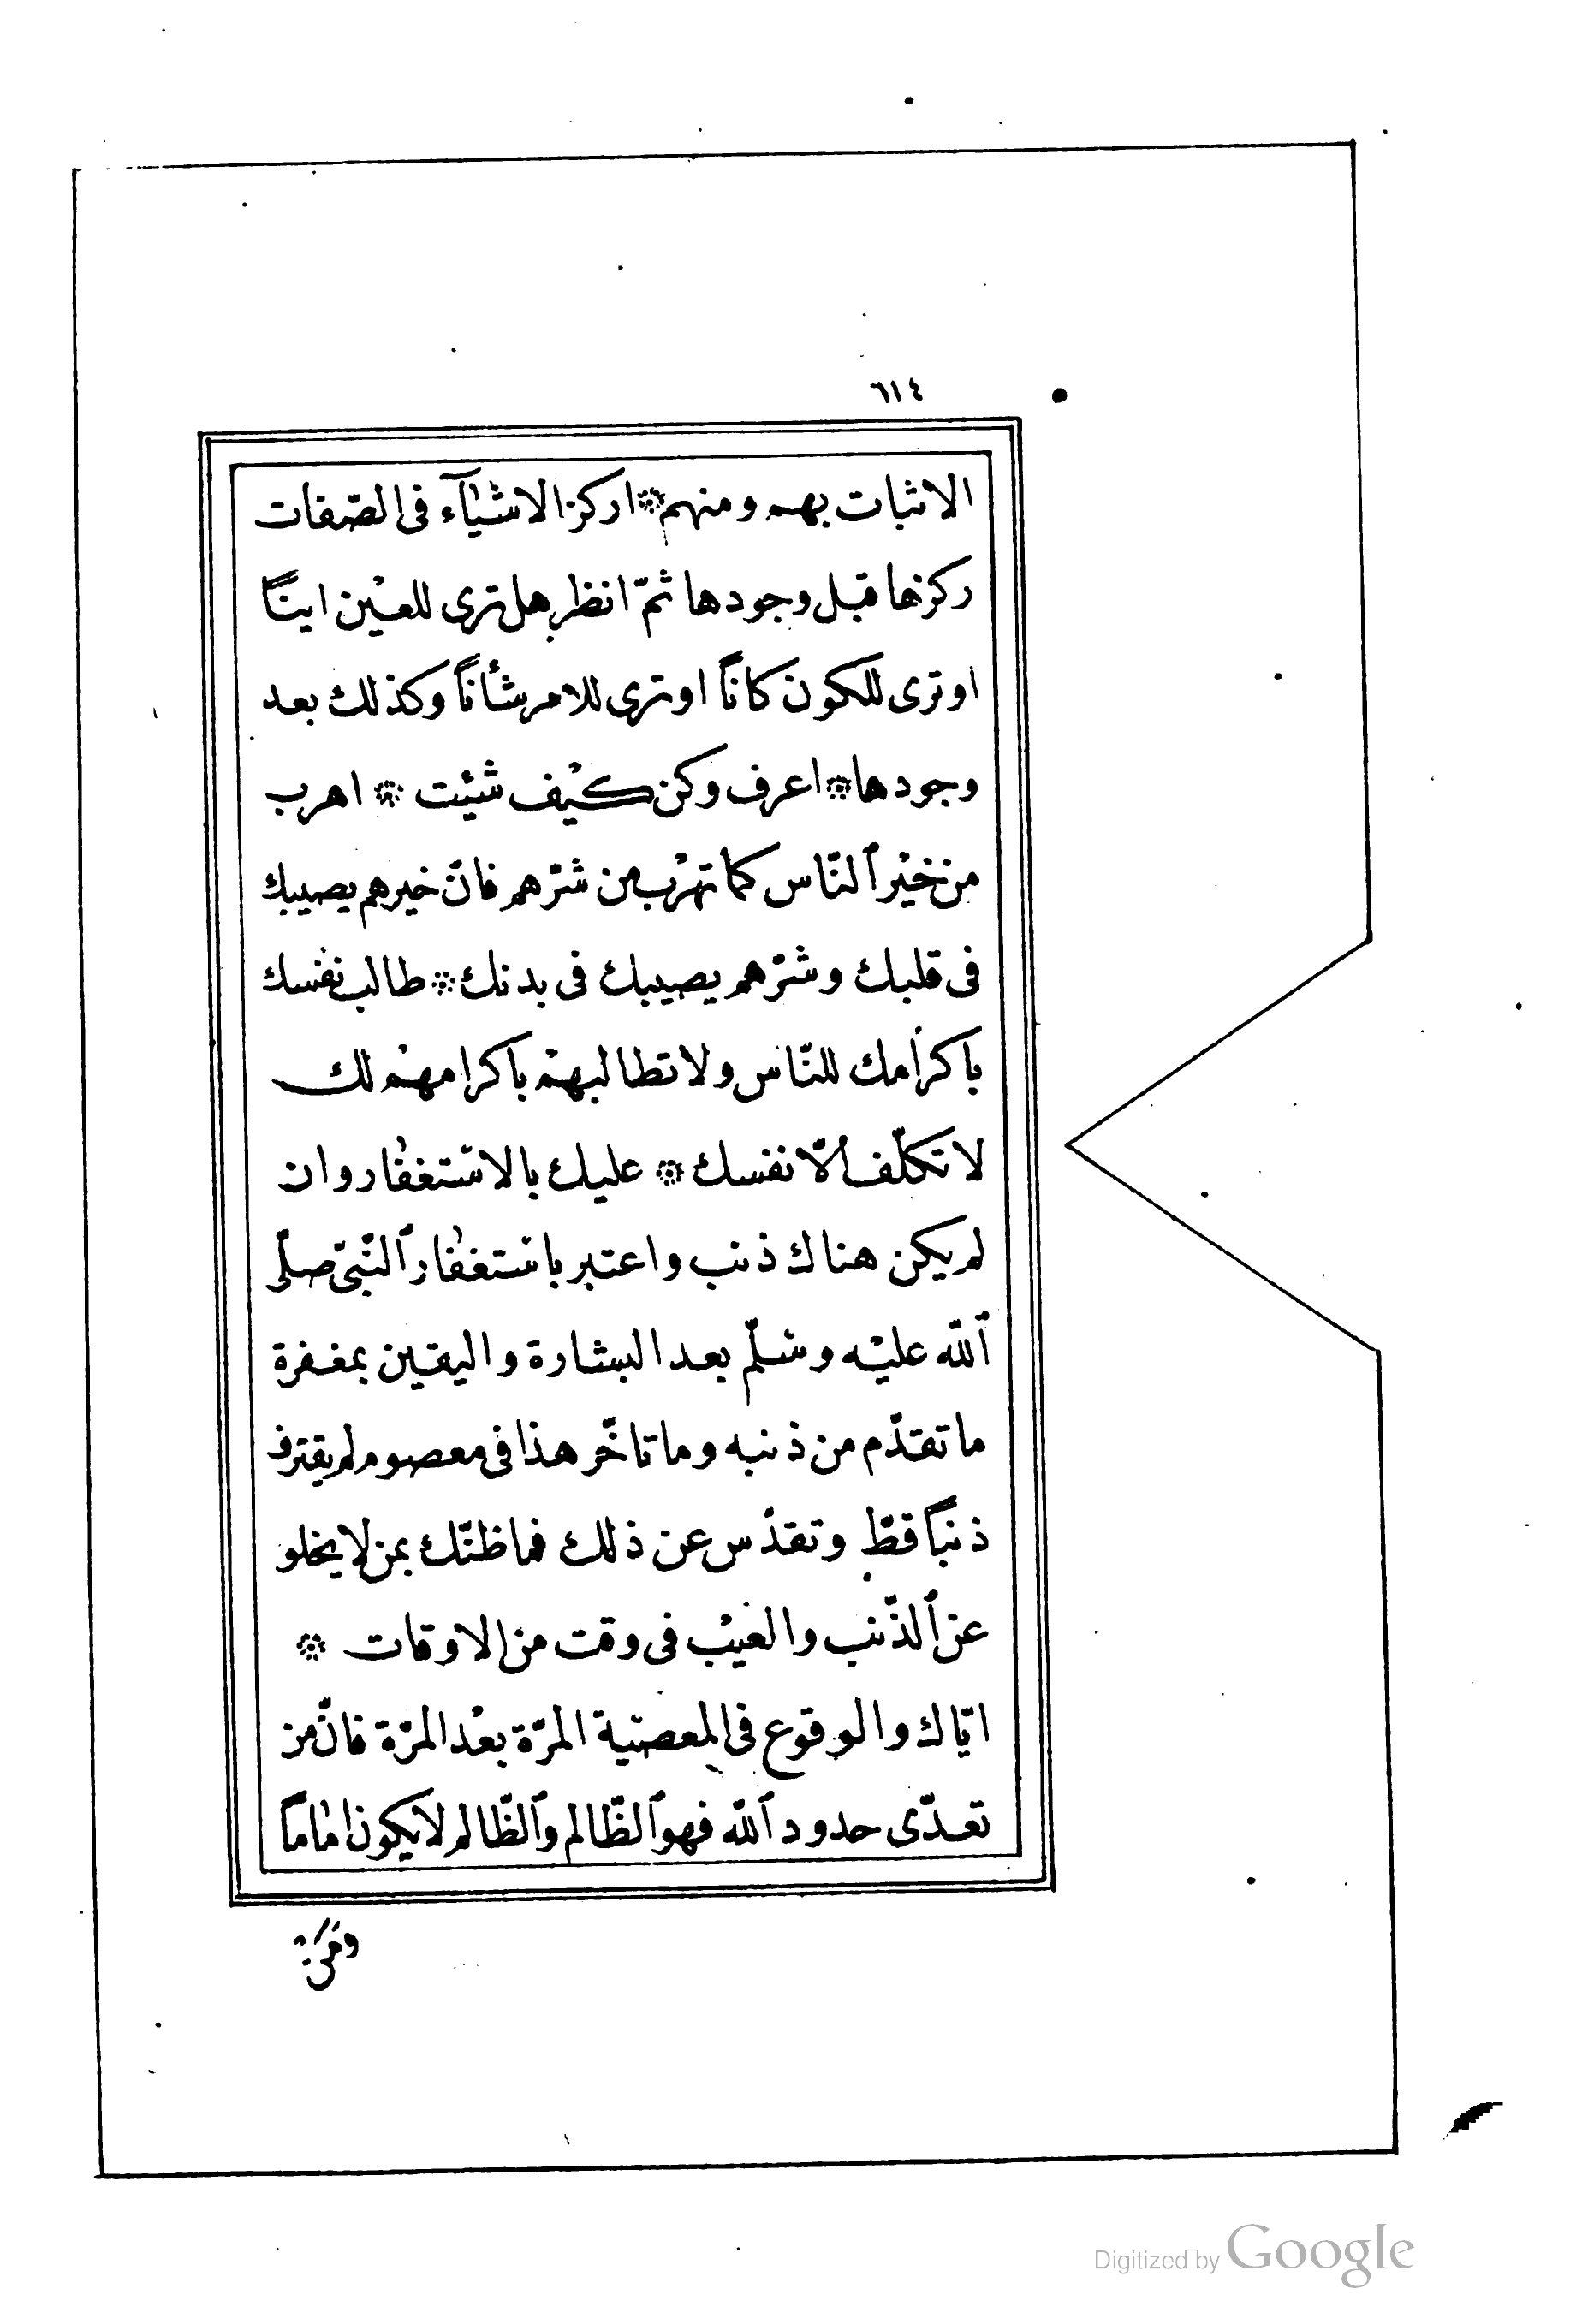 ٦١٤
الاثبات بهم ومنهم ۞ اركز الاشيآء فى الصّفات
ركزها قبل وجودها ثمّ انظر هل ترى للعيْن اينًا
او ترى للكون كانًا او ترى للامر شأنًا وكذلك بعد
وجودها ۞ اعرف وكن كيْف شئت ۞ اهرب
من خيْر ٱلنّاس كما تهرْب من شرّهم فانّ خيرهم يصيبك
فى قلبك وشرّهم يصيبك فى بدنك ۞ طالب نفسك
باكرامك للنّاس ولا تطالبهمْ باكرامهمْ لك
لا تكلّف الّا نفسك ۞ عليك بالاستغفار وان
لم يكن هناك ذنب واعتبر باستغفار ٱلنّبىّ صلّى
ٱللّه عليْه وسلّم بعد البشارة واليقين بمغفرة
ما تقدّم من ذنبه وما تاخّر هذا فى معصوم لم يقترف
ذنبًا قطّ وتقدّس عن ذلك فما ظنّك بمن لا يخلو
عن ٱلذّنب والعيْب فى وقت من الاوقات ۞
ايّاك والوقوع فى المعصية المرّة بعْد المرّة فانّ من
تعدّى حدود ٱللّه فهو ٱلظّالم وٱلظّالم لا يكون اماما
ومن
Digitized by Google